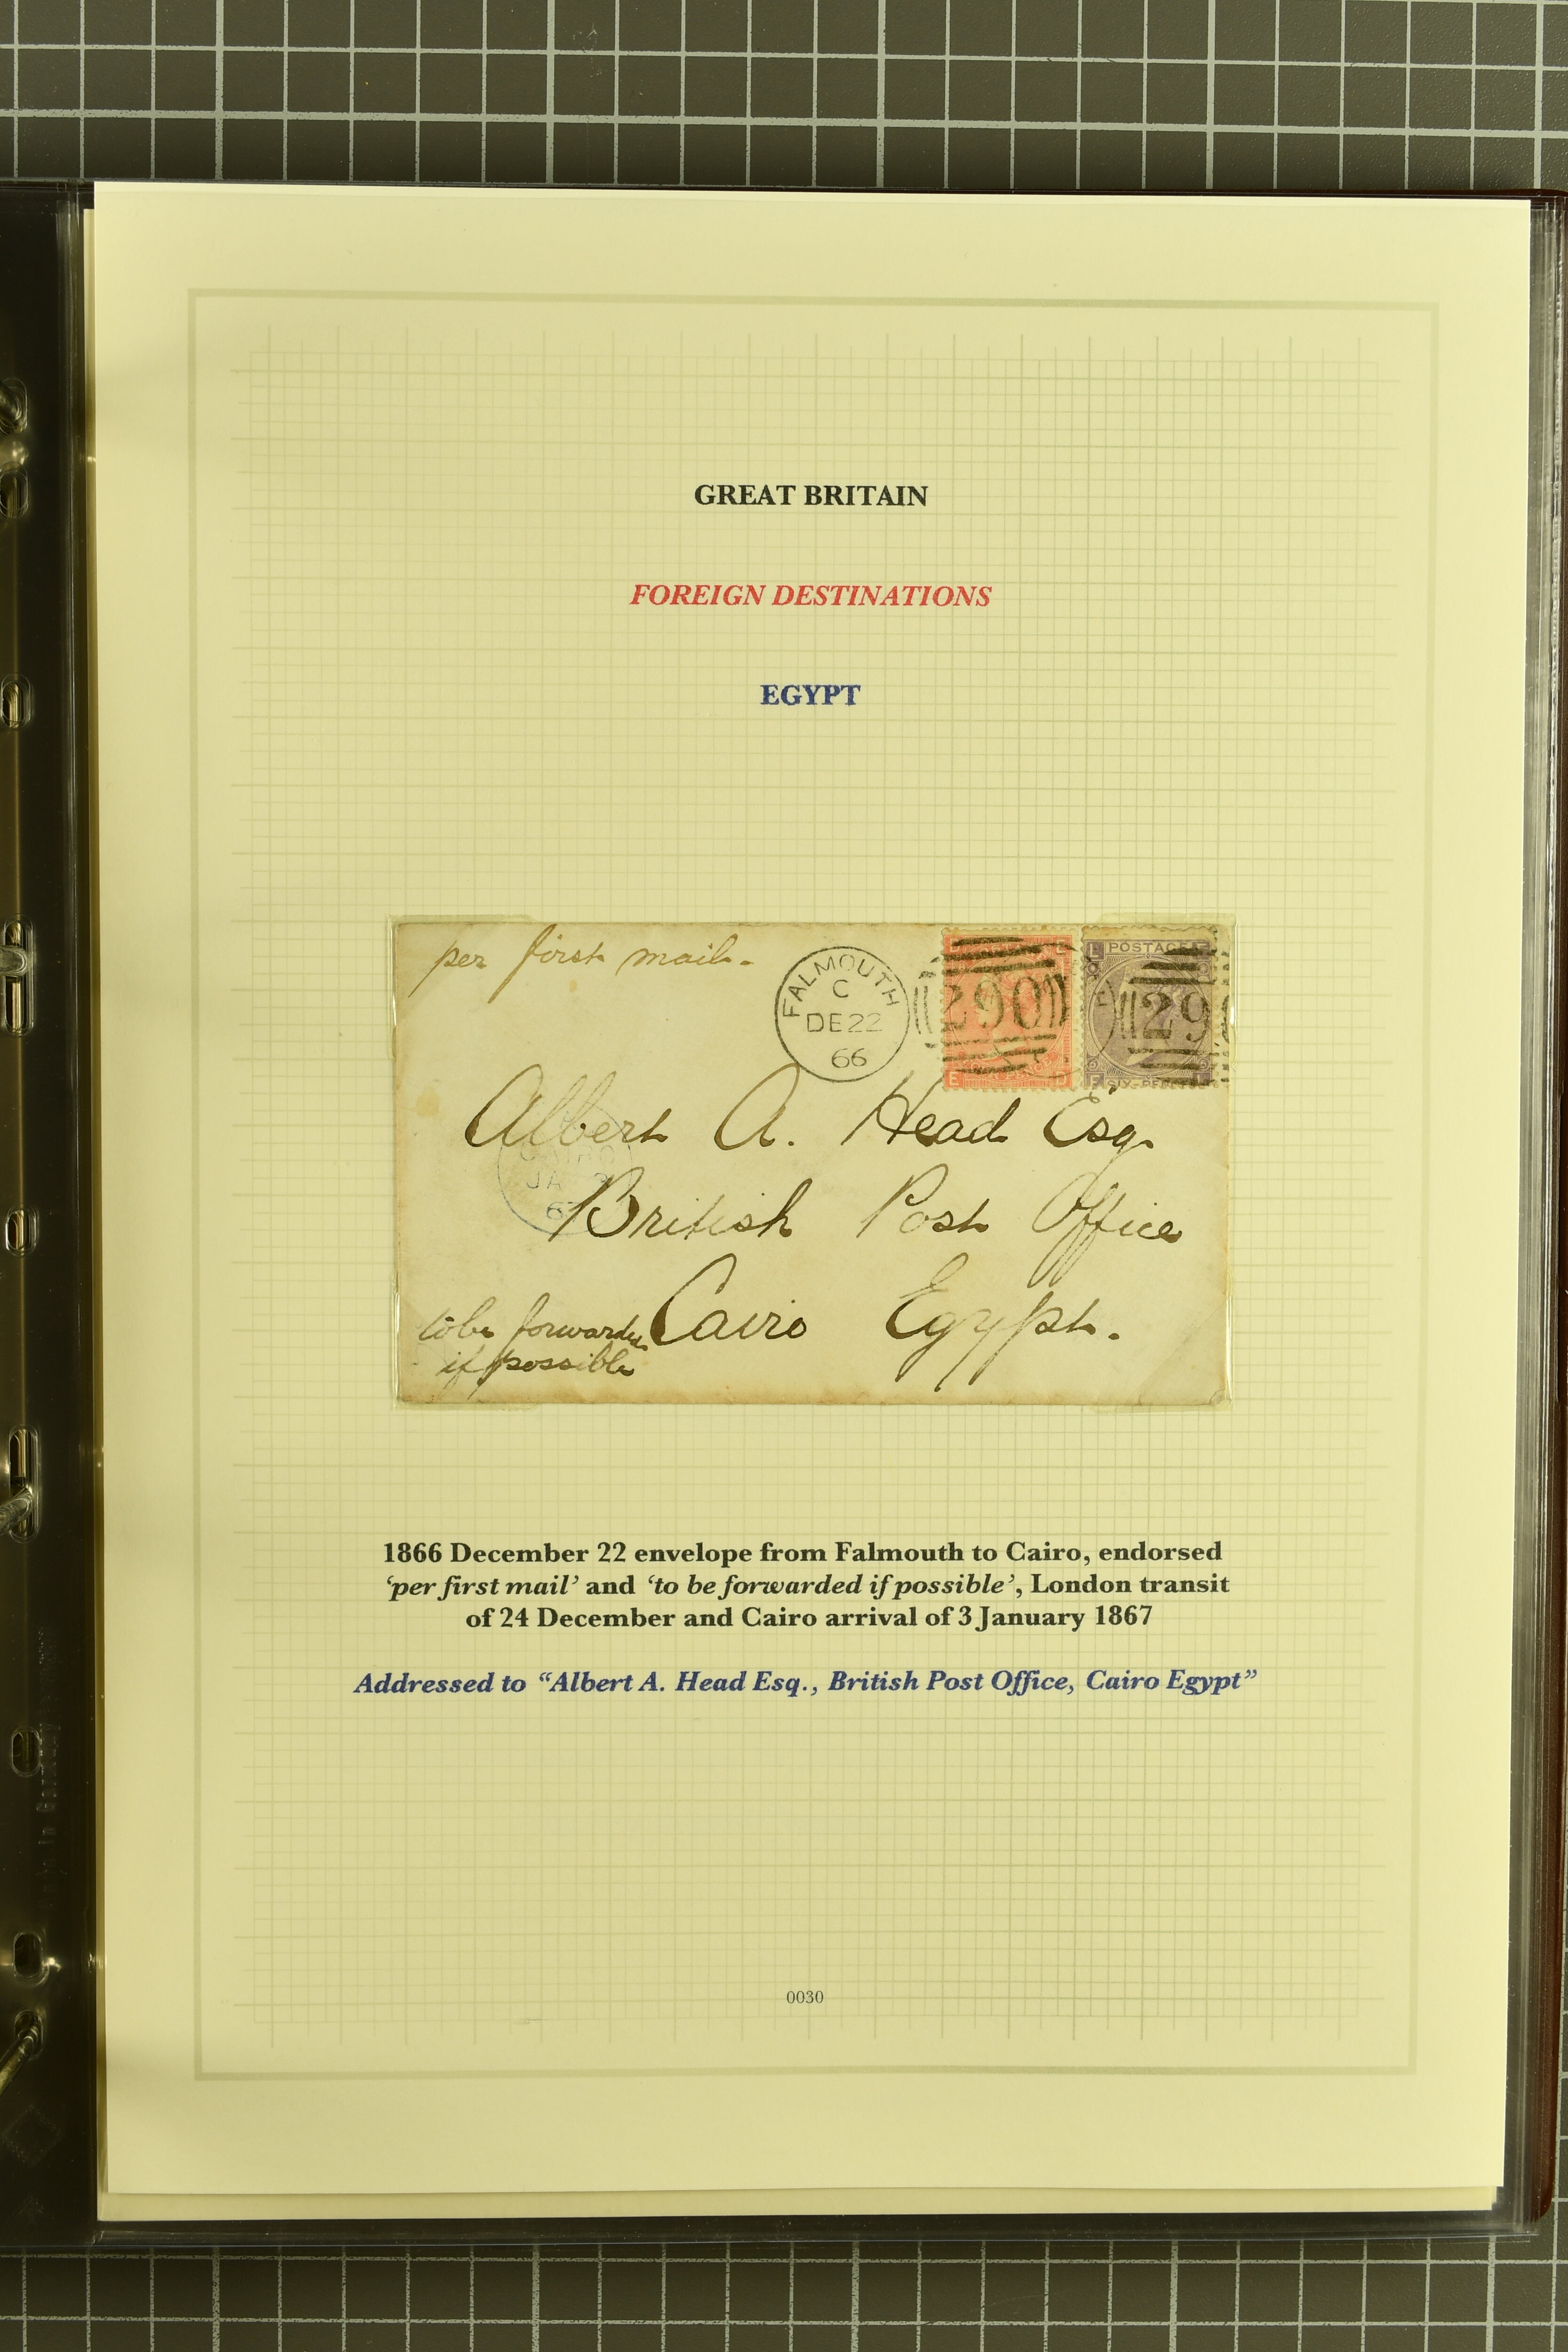 GREAT BRITAIN
FOREIGN DESTINATIONS
EGYPT
per first mail.
FALMOUTH
C
DE 22
66
290
29
POSTAGE
L
L
E
SIX-PENCE
Albert A. Head Esq.
CAIRO
JA
British Post Office
to be forwarded
if possible
Cairo Egypt.
1866 December 22 envelope from Falmouth to Cairo, endorsed
‘per first mail’ and ‘to be forwarded if possible’, London transit
of 24 December and Cairo arrival of 3 January 1867
Addressed to “Albert A. Head Esq., British Post Office, Cairo Egypt”
0030